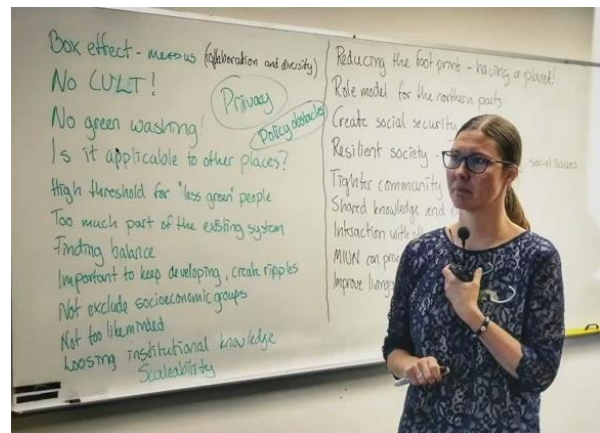 Box effect - me vs us (collaboration and diversity)
No CULT!
Privacy
No green washing!
Policy obstacles
Is it applicable to other places?
High threshold for "less green" people
Too much part of the existing system
Finding balance
Important to keep developing, create ripples
Not exclude socioeconomic groups
Not too likeminded
Loosing institutional knowledge
Scaleability
Reducing the foot print - having a planet!
Role model for the northern parts
Create social security
Resilient society
social issues
Tighter community
Shared knowledge and
Intraction with
MIUN can
Improve living